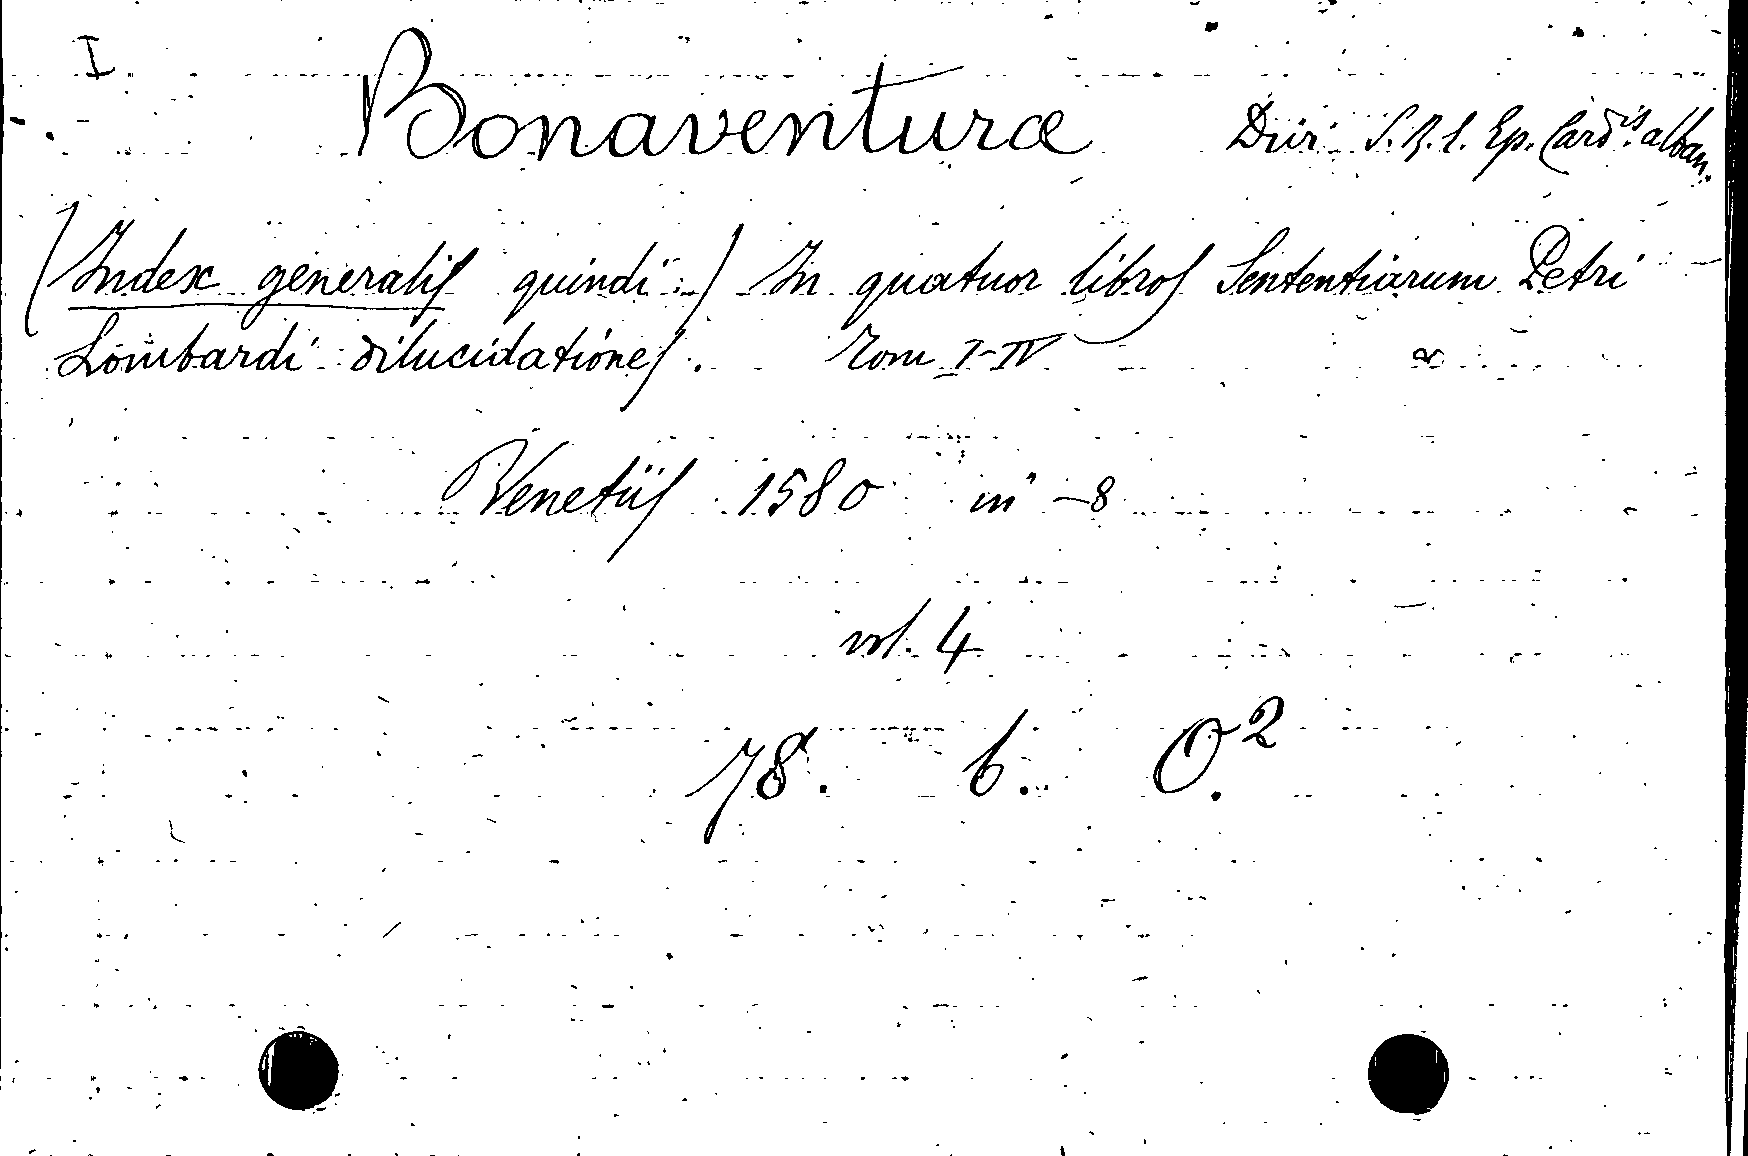 I.
Bonaventuræ Divi S. R. E. Ep. Card.is alban.
(Index generalis quindi..) In quatuor libros Sententiarum Petri
Lombardi dilucidationes. Tom I-IV
Venetiis 1580 in -8
vol. 4
78. b. O.2